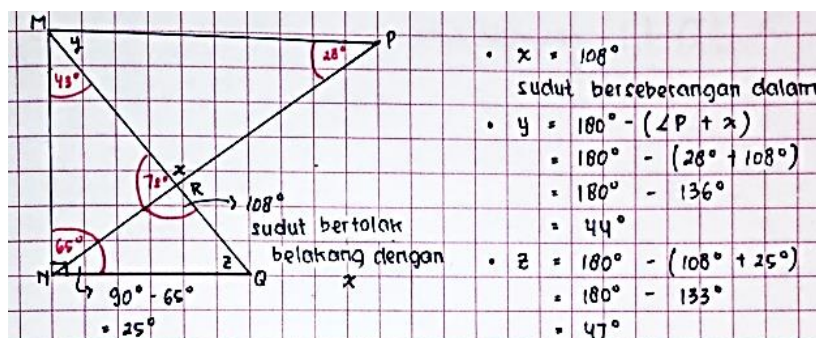 M
y
28°
P
43°
x
72°
R
108°
sudut bertolak
belakang dengan
x
65°
N
z
Q
90° - 65°
= 25°
• x = 108°
sudut berseberangan dalam
• y = 180° - (∠P + x)
= 180° - (28° + 108°)
= 180° - 136°
= 44°
• z = 180° - (108° + 25°)
= 180° - 133°
= 47°